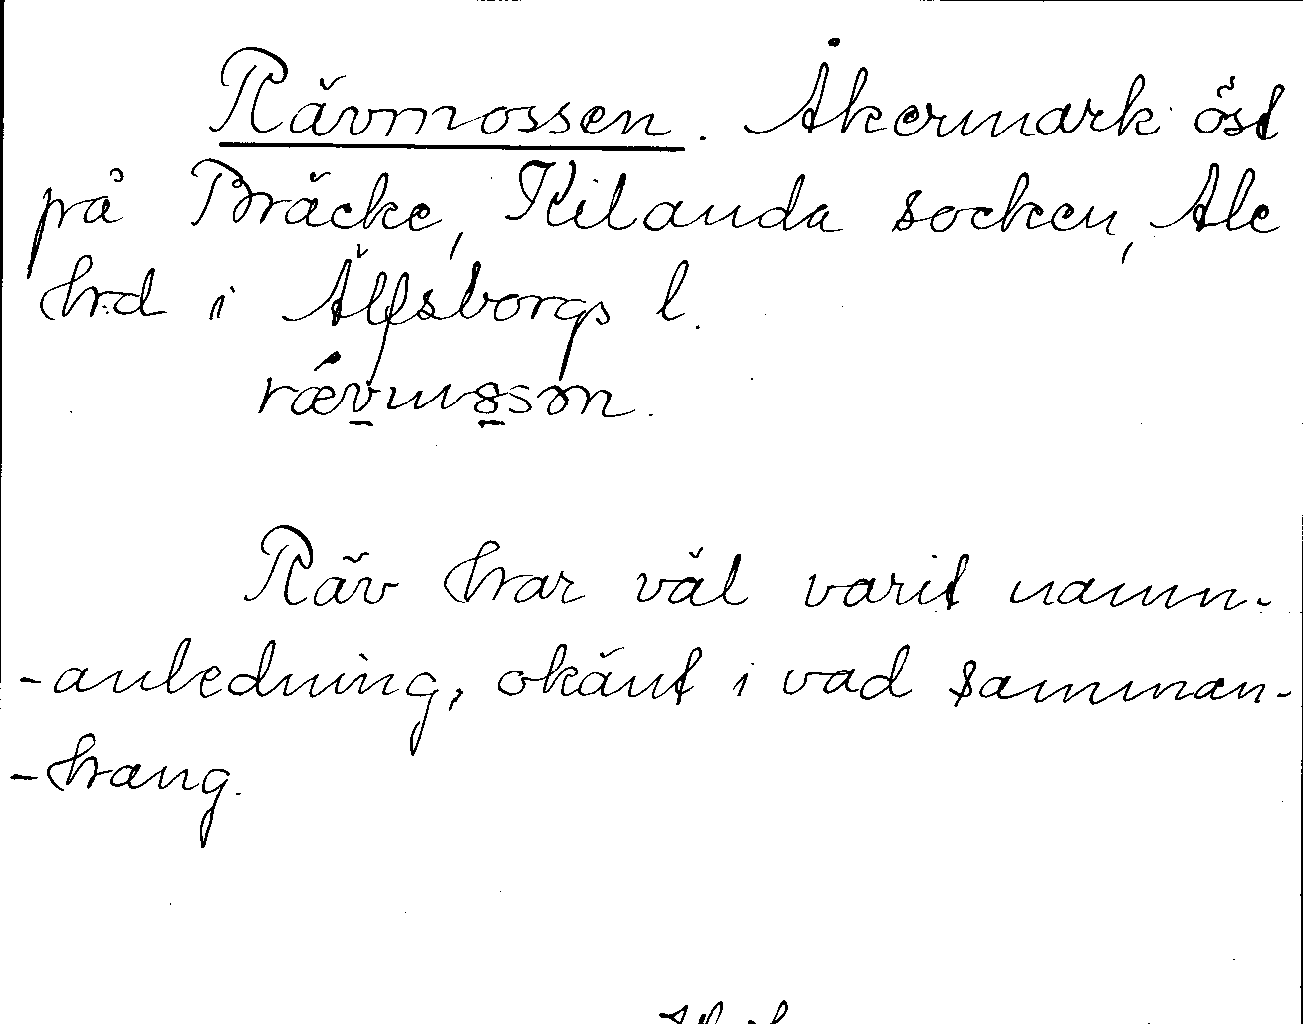 Rävmossen. Åkermark öst
på Bräcke, Kilanda socken, Ale
hrd i Älfsborgs l.
Räv har väl varit namn-
-anledning, okänt i vad samman-
-hang.